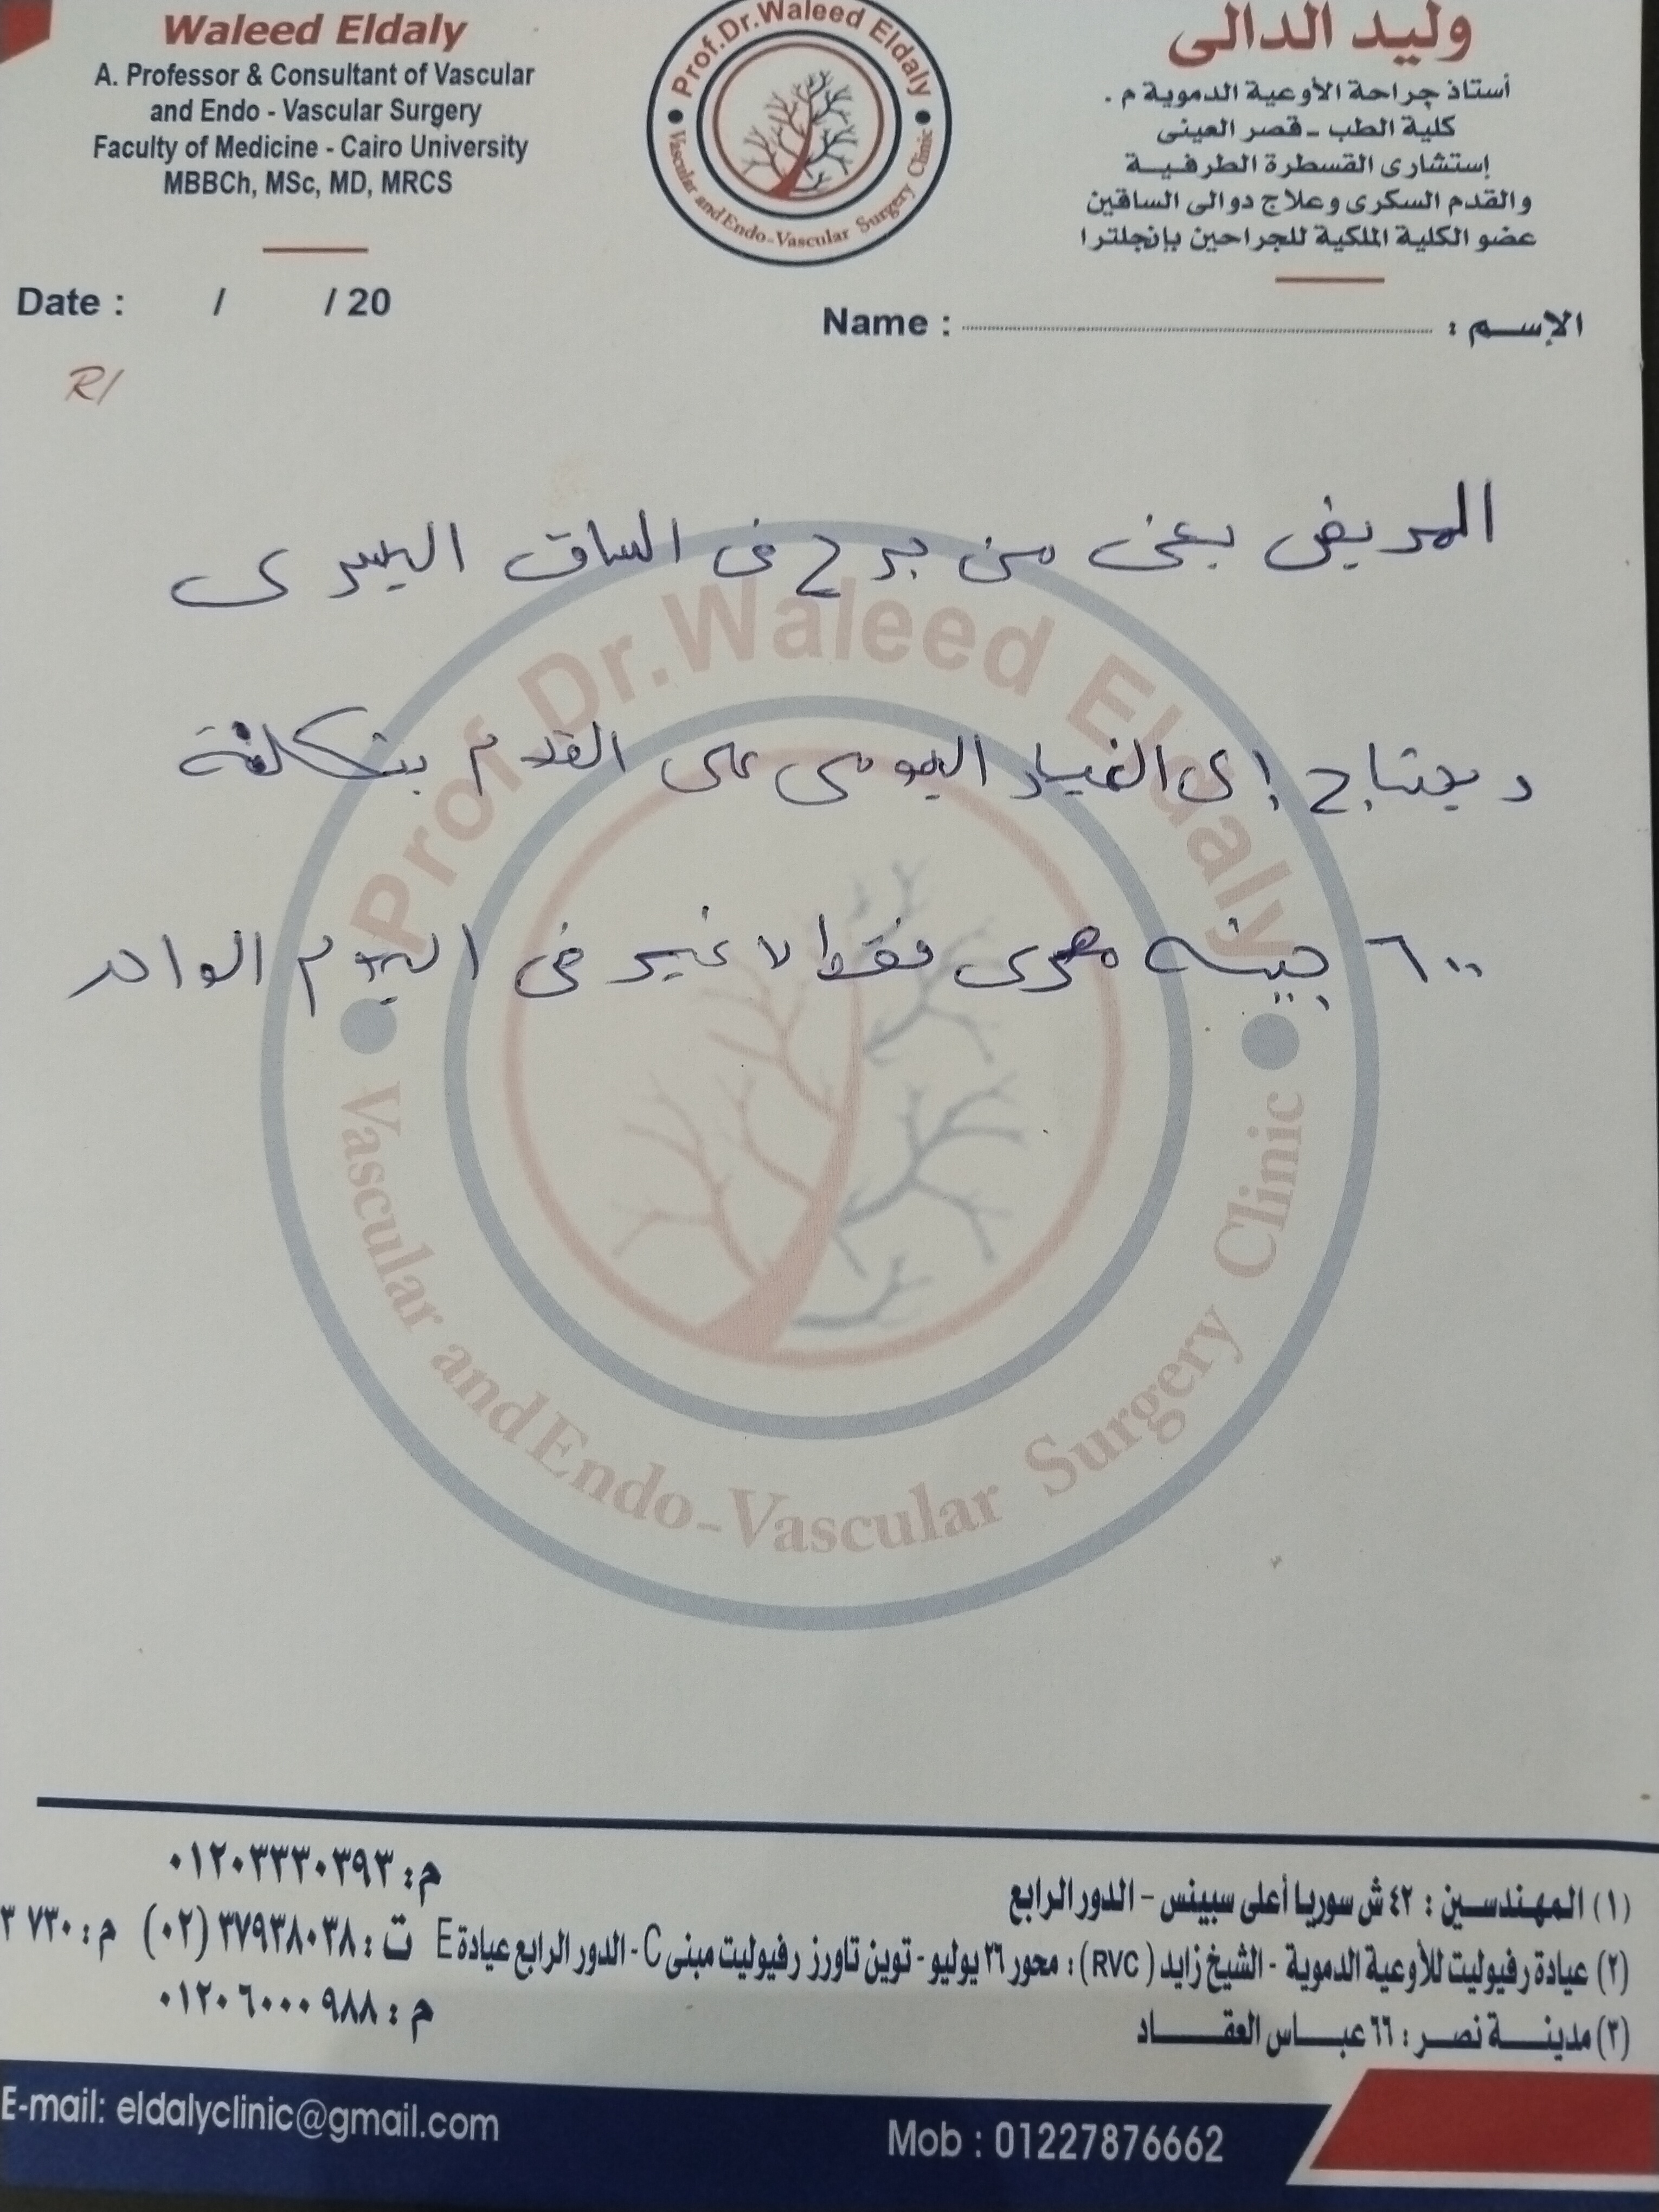 Waleed Eldaly
A. Professor & Consultant of Vascular
and Endo - Vascular Surgery
Faculty of Medicine - Cairo University
MBBCh, MSc, MD, MRCS
Prof.Dr.Waleed Eldaly
Vascular and Endo-Vascular Surgery Clinic
وليد الدالى
أستاذ جراحة الأوعية الدموية م .
كلية الطب - قصر العينى
إستشارى القسطرة الطرفية
والقدم السكرى وعلاج دوالى الساقين
عضو الكلية الملكية للجراحين بإنجلترا
Date : / / 20
Name : الإسم :
R/
المريض يعنى من جرح فى الساق اليسرى
و يحتاج إلى الغيار اليومى على القدم بتكلفة
٦٠٠ جينه مصرى فقط لا غير فى اليوم الواحد
Prof.Dr.Waleed Eldaly
Vascular and Endo-Vascular Surgery Clinic
(١) المهندسين : ٤٢ ش سوريا أعلى سبينس - الدور الرابع م : ٠١٢٠٣٣٣٠٣٩٣
(٢) عيادة رفيوليت للأوعية الدموية - الشيخ زايد ( RVC ) : محور ٢٦ يوليو - توين تاورز رفيوليت مبنى C - الدور الرابع عيادة E ت : ٣٧٩٣٨٠٣٨ (٠٢) م : ٧٣٠ ٣
(٣) مدينة نصر : ٦٦ عباس العقاد م : ٠١٢٠٦٠٠٠٩٨٨
E-mail: eldalyclinic@gmail.com
Mob : 01227876662